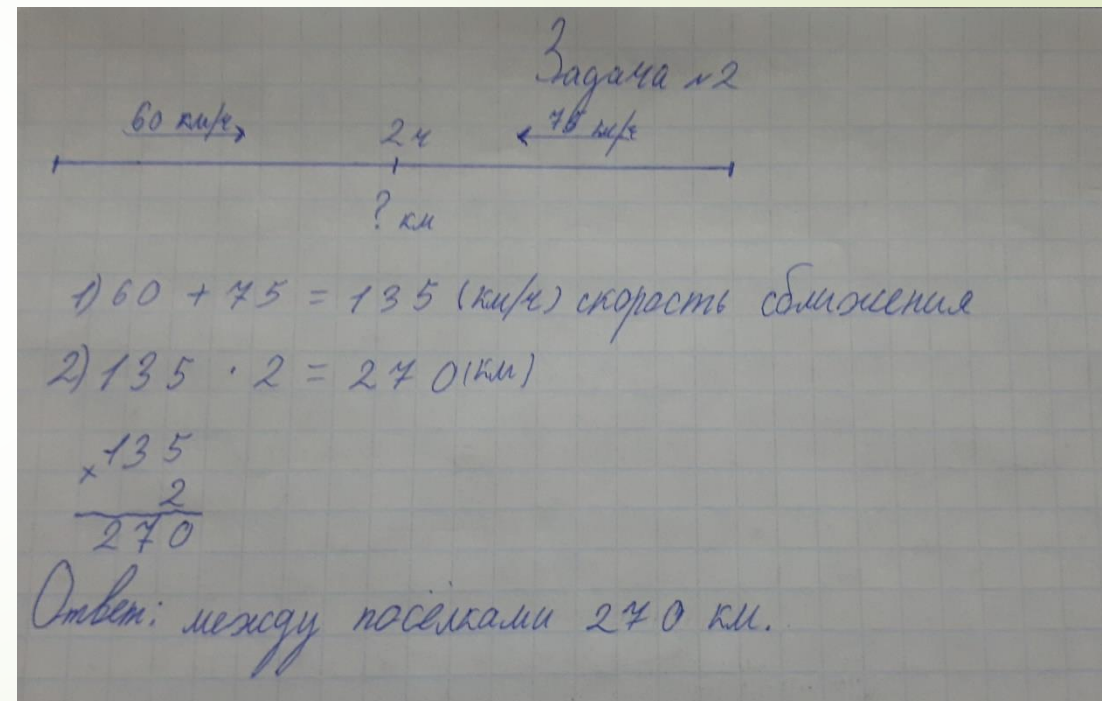 Задача №2
60 км/ч 2ч 75 км/ч
? км
1) 60 + 75 = 135 (км/ч) скорость сближения
2) 135 · 2 = 270 (км)
× 135
2
270
Ответ: между посёлками 270 км.